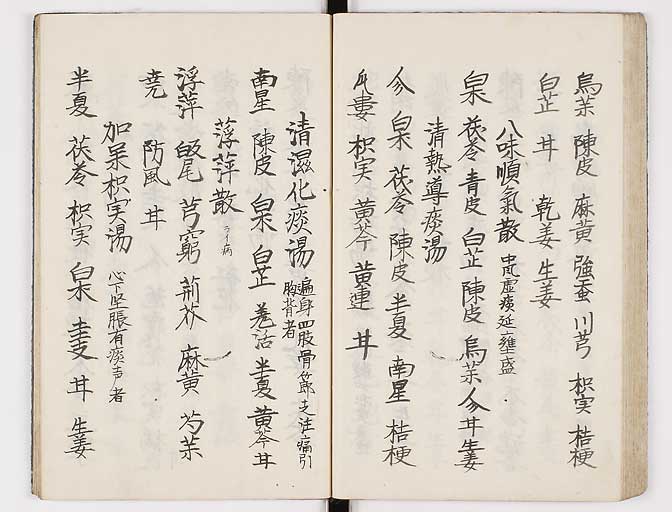 烏茉 陳皮 麻黄 強蚕 川芎 枳実 桔梗
白芷 廾 乾姜 生姜
八味順氣散 中風虚痰延壅盛
白朮 茯苓 青皮 白芷 陳皮 烏茉 人 廾 生姜
清熱導痰湯
人 白朮 茯苓 陳皮 半夏 南星 桔梗
瓜蔞 枳実 黄芩 黄連 廾
清濕化痰湯 遍身四肢骨節走注痛引
胸背者
南星 陳皮 白朮 白芷 羗活 半夏 黄芩 廾
浮萍散 ライ病
浮萍 芎窮 荊芥 麻黄 芍茉
防風 廾
加茉枳実湯 心下堅脹有痰声者
半夏 茯苓 枳実 白朮 廾 生姜